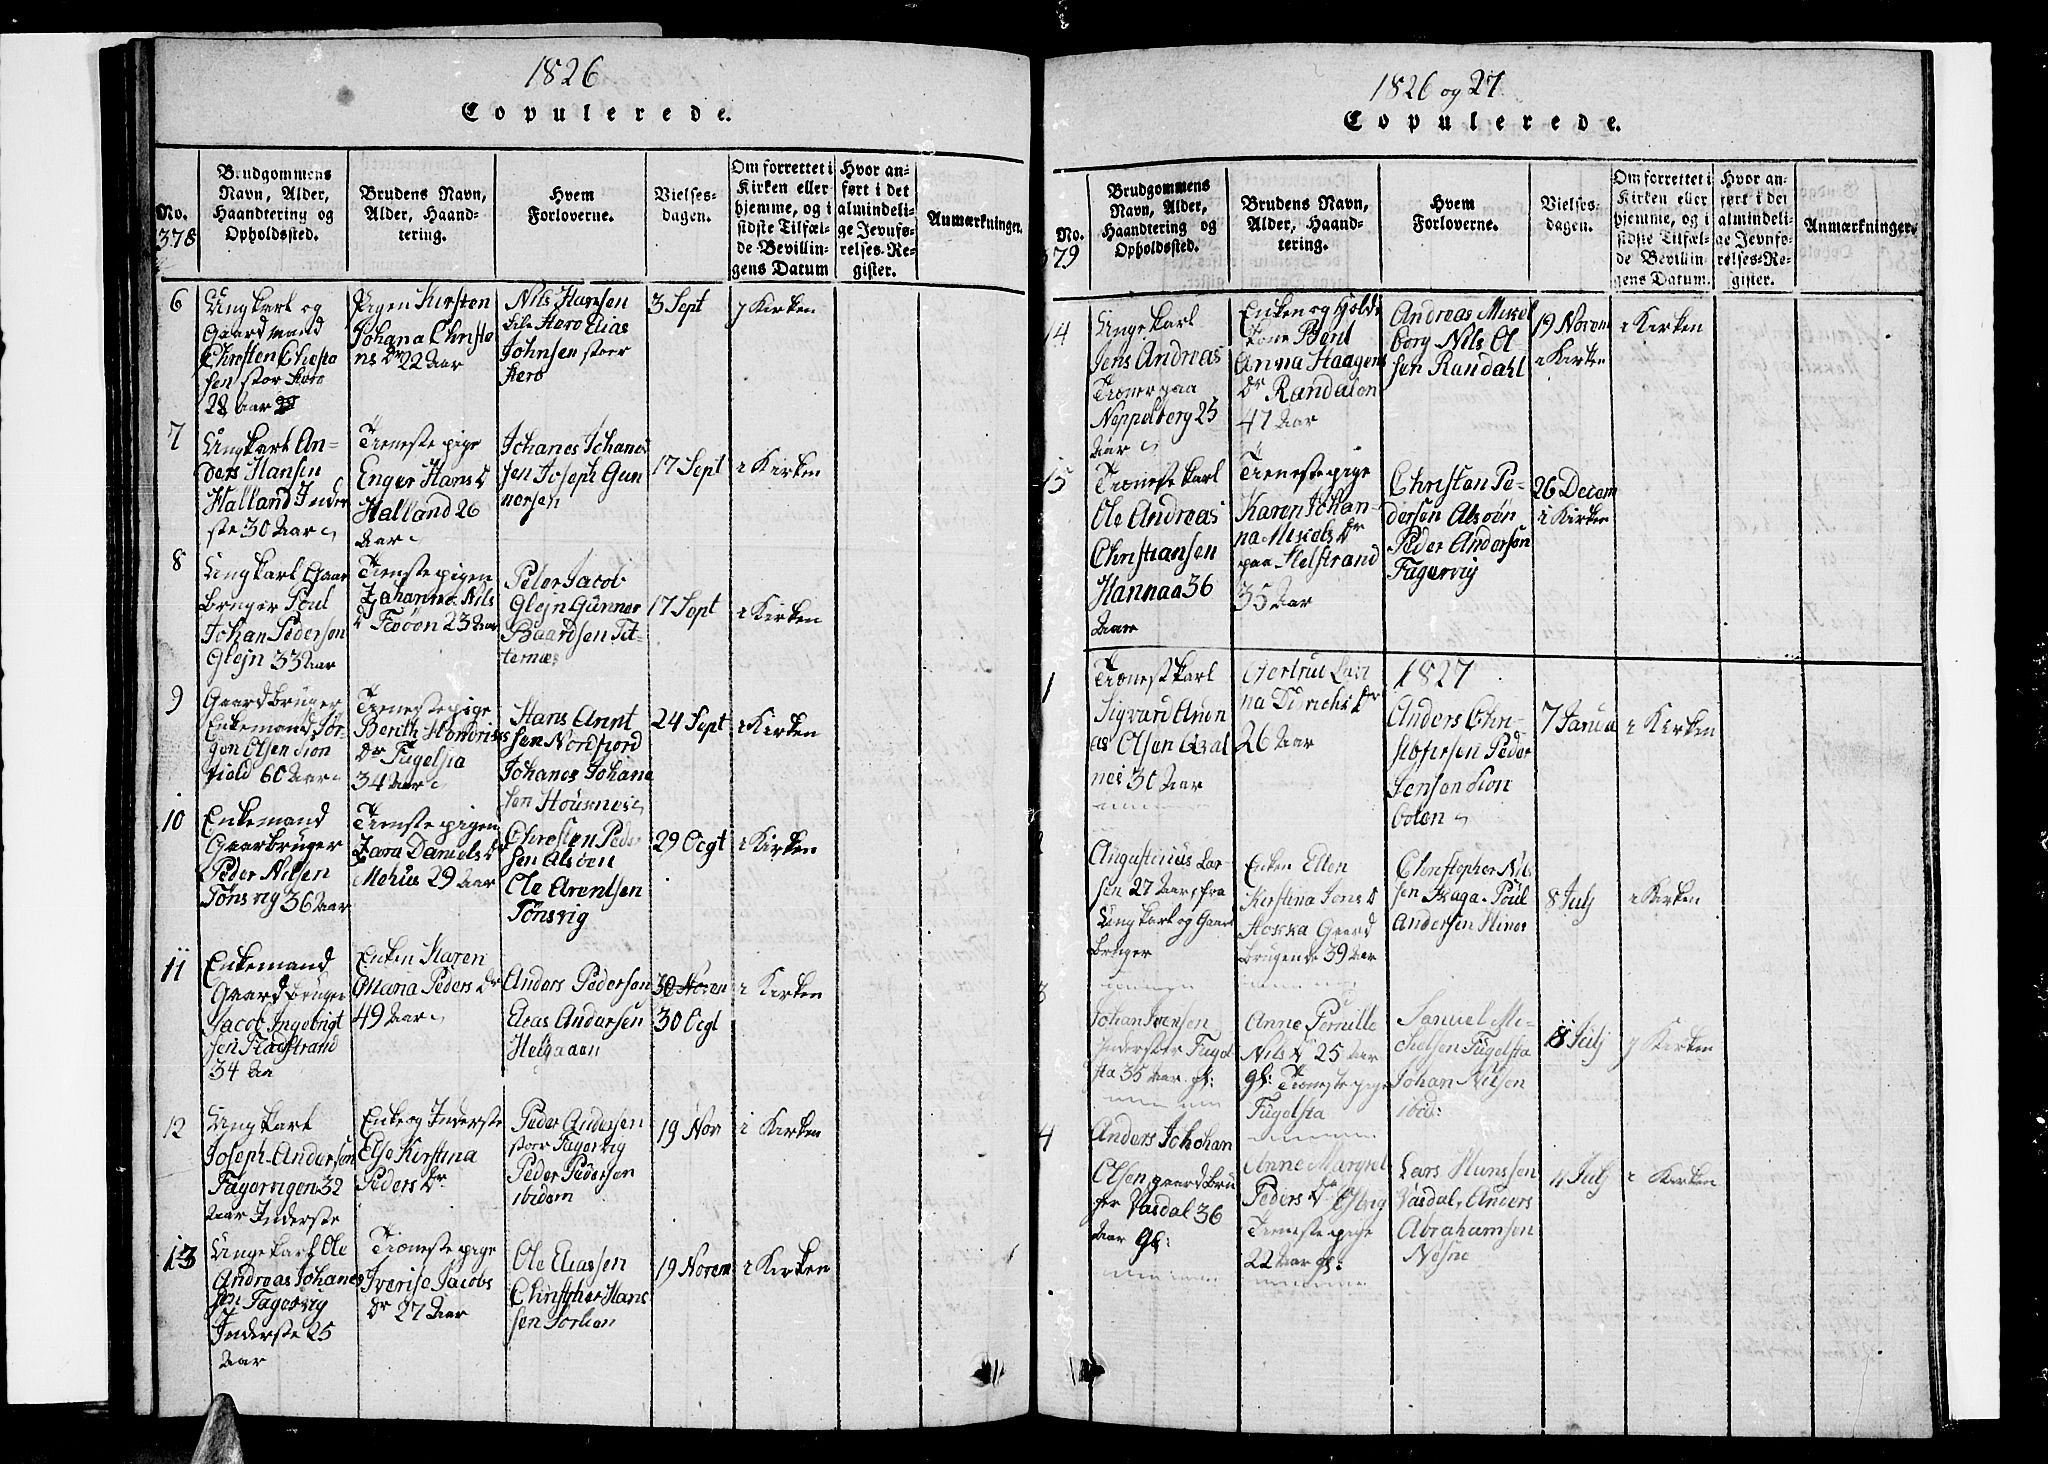 1826
Copulerede.
No.
378
Brudgommens
Navn, Alder,
Haandtering og
Opholdssted.
Brudens Navn,
Alder, Haand-
tering.
Hvem
Forloverne.
Vielses-
dagen.
Om forrettet i
Kirken eller
hjemme, og i
sidste Tilfæl-
de Bevillin-
gens Datum
Hvor an-
ført i det
almindeli-
ge Jevnfø-
relses-Re-
gister.
Anmærkninger.
6
Ungkarl og
Gaardmand
Christen Christa
sen stor Hero
28 Aar
Pigen Kirsten
Johana Christe
ns Dr 22 Aar
Nils Hansen
Lile Hero Elias
Johnsen stoer
Hero
3 Sept
j Kirken
7
Ungkarl An-
ders Hansen
Halland Inder
ste 30 Aar
Tieneste pige
Enger Hans D
Halland 26
Aar
Johanes Johanes
sen Joseph Gun
nersen
17 Sept
i Kirken
8
Ungkarl Gaar
bruger Poul
Johan Pedersen
Glejn 33 Aar
Tieneste pigen
Johanna Nils
D Texøon 23 Aar
Peter Jacob
Glejn Gunner
Baardsen Tit-
ternæs
17 Sept
i Kirken
9
Gaardbruger
Enkemand Jør
gen Olsen Sion
field 60 Aar
Tieneste pige
Berith Hendrics
Dr Fugelsta
34 Aar
Hans Arnt
sen Nordfjord
Johanes Johane
sen Housnes
24 Sept
i Kirken
10
Enkemand
Gaarbruger
Peder Nilsen
Tønsvig 36 Aar
Tieneste pigen
Zara Daniels Dr
Mehus 29 Aar
Christen Peder
sen Alsøen
Ole Arentsen
Tønsvig
29 Ocgt
i Kirken
11
Enkemand
Gaardbruger
Jacob Ingebrigt
sen Stadstrand
34 Aa
Enken Karen
Maria Peders Dr
49 Aar
Anders Pedersen
Elias Andersen
Helgaaen
30 Noven
30 Ocgt
i Kirken
12
Ungkarl
Joseph Andersen
Fagervigen 32
Aar Inderste
Enke og Inderste
Else Kirstina
Peders Dr
Peder Andersen
stoer Fagervig
Peder Pedersen
ibidem
19 Nov
i Kirken
13
Ungekarl Ole
Andreas Johanes
sen Fagervig
Inderste 25
Aar
Tieneste pige
Iverise Jacobs
Dr 27 Aar
Ole Eliassen
Christopher Hans
sen Sorlien
19 Novem
i Kirken
1826 og 27
Copulerede.
No.
379
Brudgommens
Navn, Alder,
Haandtering og
Opholdssted.
Brudens Navn,
Alder, Haand-
tering.
Hvem
Forloverne.
Vielses-
dagen.
Om forrettet i
Kirken eller
hjemme, og i
sidste Tilfæl-
de Bevillin-
gens Datum.
Hvor an-
ført i det
almindeli-
ge Jevnfø-
relses-Re-
gister.
Anmærkninger.
14
Ungekarl
Jens Andreas
Tiener paa
Neppelberg 25
Aar
Enken og
kone Bent
Anna Haagens
Dr Randalen
47 Aar
Andreas Mikel
borg Nils Ol
sen Randahl
19 Novem
i Kirken
i Kirken
15
Tieneste karl
Ole Andreas
Christiansen
Hannaa 36
Aar
Tieneste pige
Karen Johan-
na Mikels Dr
paa Helstrand
35 Aar
Christen Pe-
dersen Alsøen
Peder Andersen
Fagervig
26 Decem
i Kirken
1827
1
Tienestkarl
Sigvard Anen
as Olsen Qval
nes 30 Aar
Gertrud Lari
na Didrichs Dr
26 Aar
Anders Chri-
stofersen Peder
Jensen Sion
bolen
7 Janua
i Kirken
2
Augustinus Lar-
sen 27 Aar fra
Ungkarl og Gaar
bruger
Enken Ellen
Kirstina Jons D
Stokka Gaard
brugende 39 Aar
Christopher Nils
sen Haga Poul
Andersen Hines
8 Julj
i Kirken
3
Johan Ivensen
Inderster Fugel
sta 35 Aar gl:
Anne Pernille
Nils Dr 25 Aar
gl: Tieneste pige
Fugelsta
Samuel Mi-
chelsen Fugelsta
Johan Nilsen
ibid:
18 Julj
j Kirken
4
Anders Johohan
Olsen gaardbru
ger Vasdal 36
Aar gl:
Anne Margret
Peders Dr
Tieneste pige
22 Aar gl:
Lars Hanssen
Vasdal, Anders
Abrahamsen
Nesne
11 Julj
i Kirken